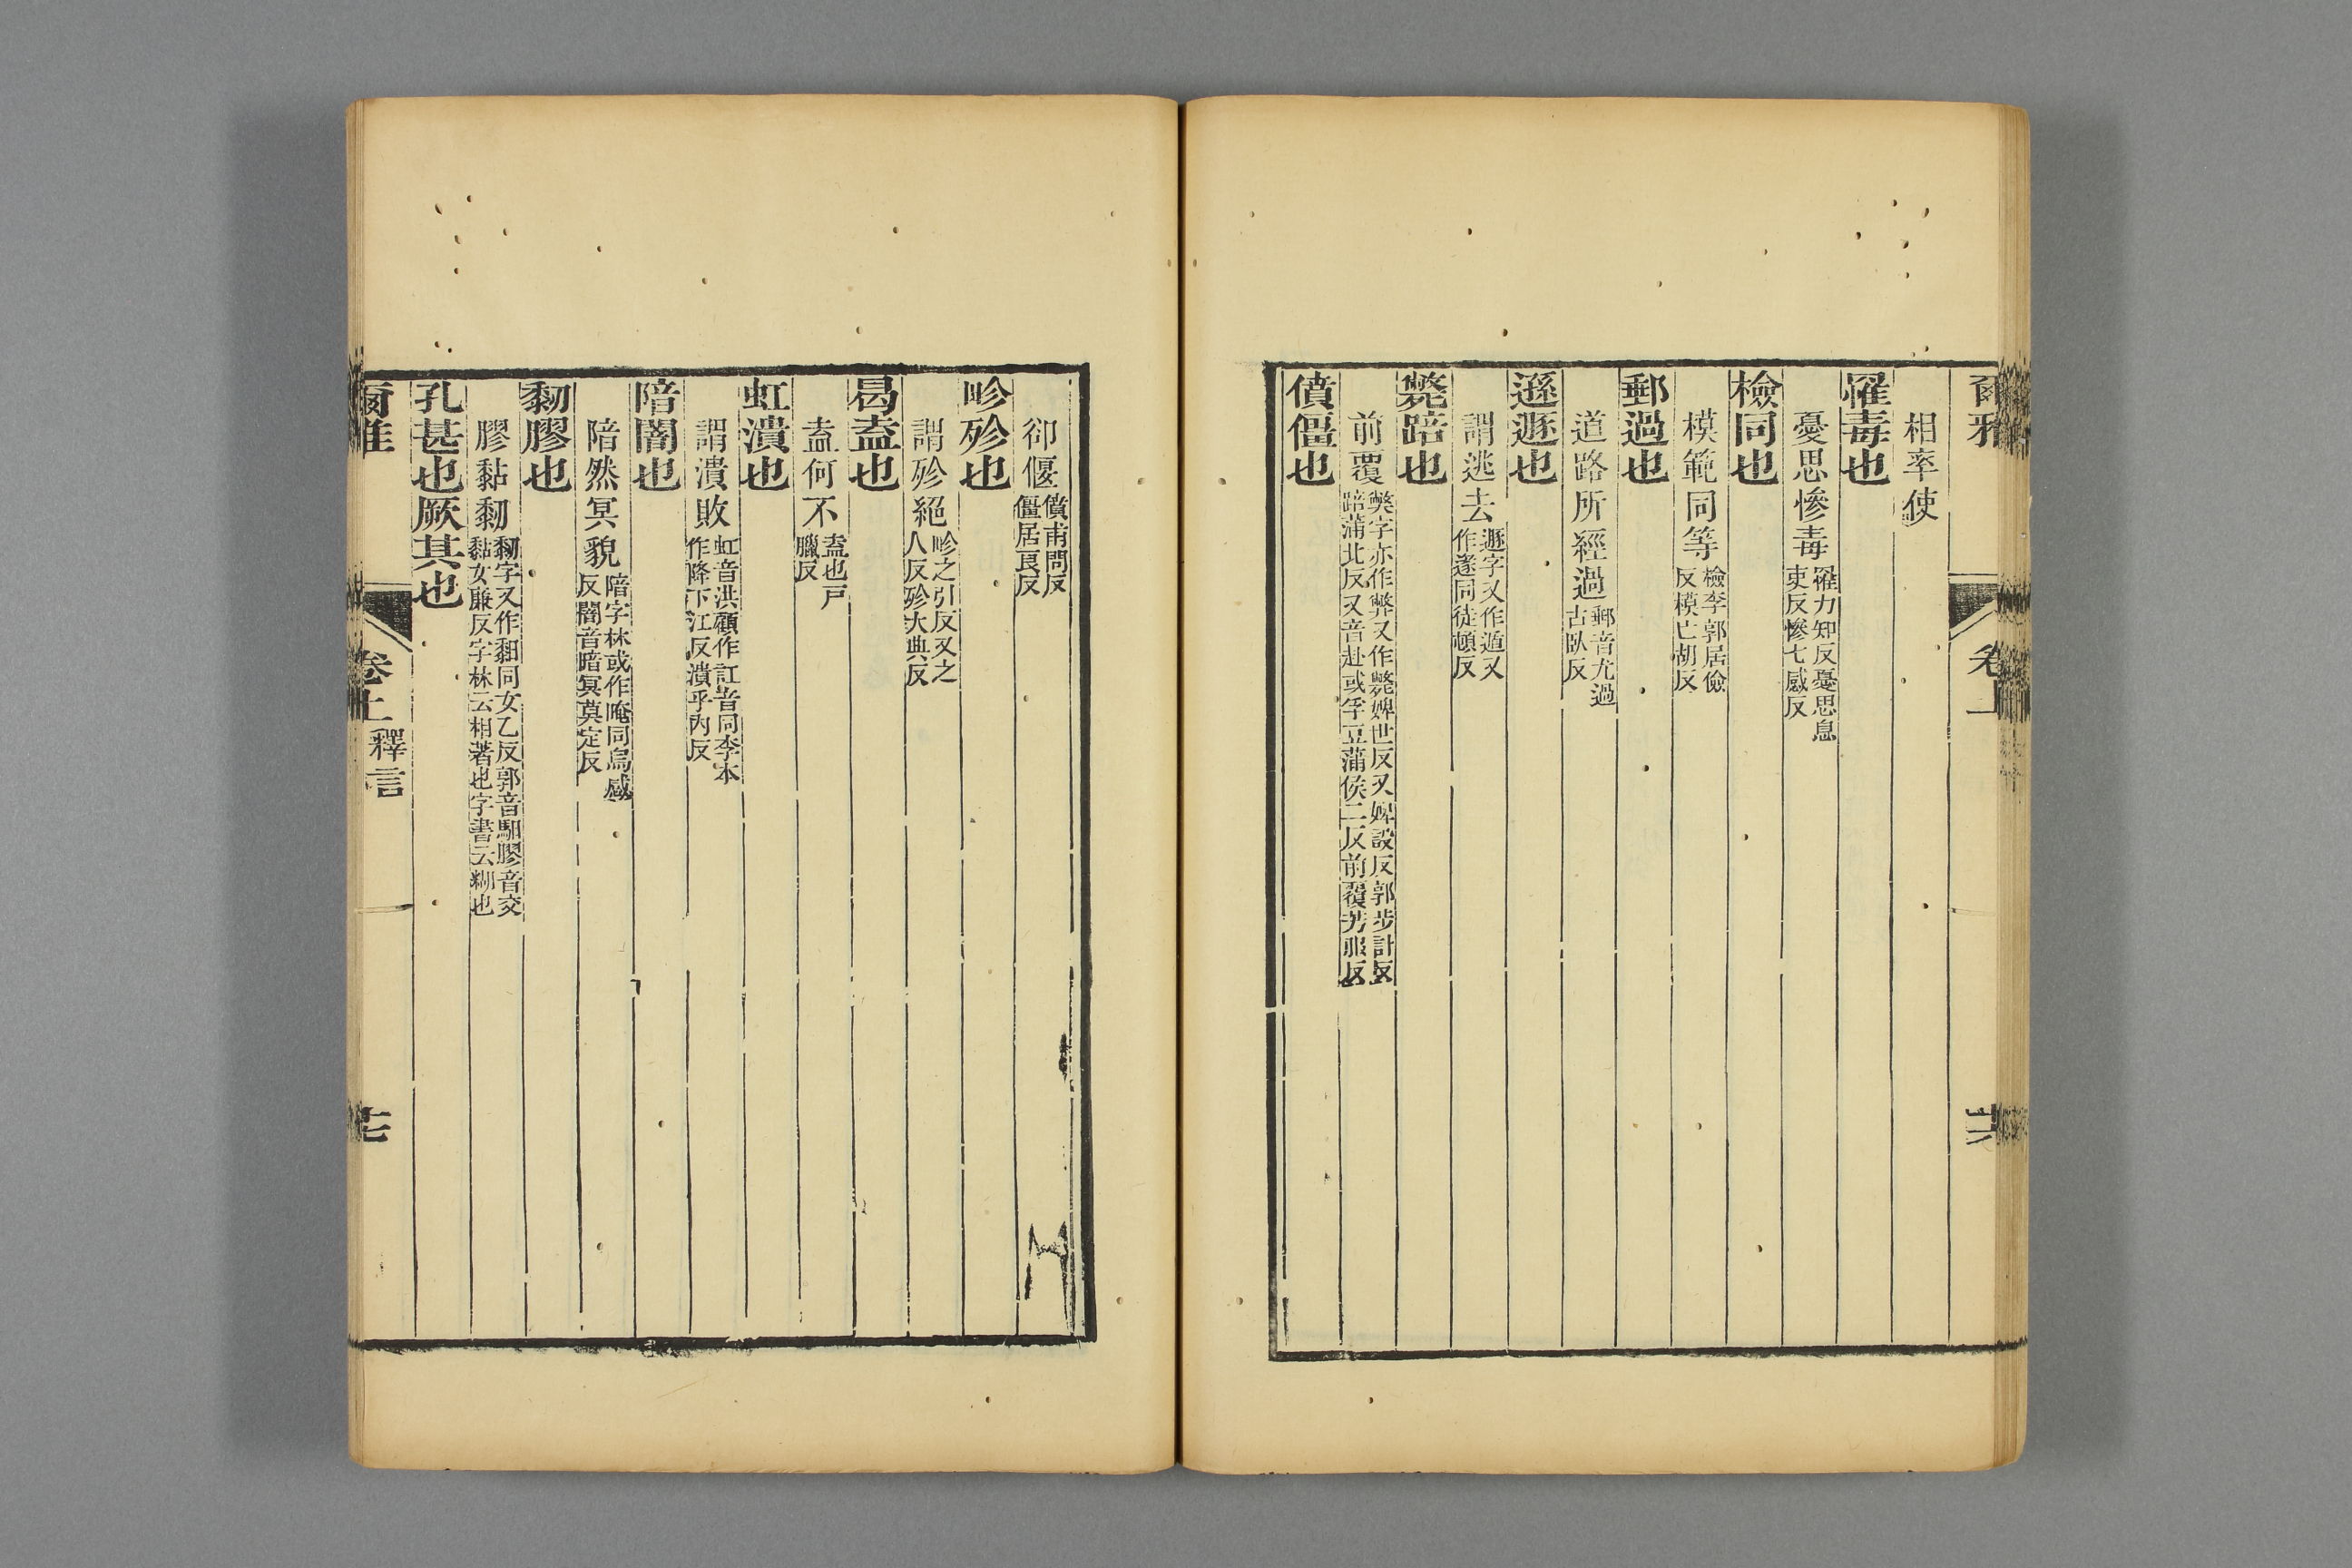 爾雅 卷上 十六
相率使
罹毒也
憂思慘毒罹力知反憂思息吏反慘七感反
檢同也
模範同等檢李郭居儉反模亡胡反
郵過也
道路所經過郵音尤過古臥反
遜遯也
謂逃去遯字又作遁又作遂同徒頓反
斃踣也
前覆獘字亦作弊又作斃婢世反又婢設反郭步計反踣蒲北反又音赴或孚豆蒲侯二反前覆芳服反
僨僵也
卻偃僨甫問反僵居良反
畛殄也
謂殄絕畛之引反又之人反殄大典反
曷盍也
盍何不盍也戸臘反
虹潰也
謂潰敗虹音洪顧作訌音同李本作降下江反潰乎內反
陪闇也
陪然冥貌陪字林或作晻同烏感反闇音暗冥莫定反
䵒膠也
膠黏䵒䵒字又作䵑同女乙反郭音馹膠音交黏女廉反字林云相著也字書云糊也
孔甚也厥其也
爾雅 卷上 釋言 十七